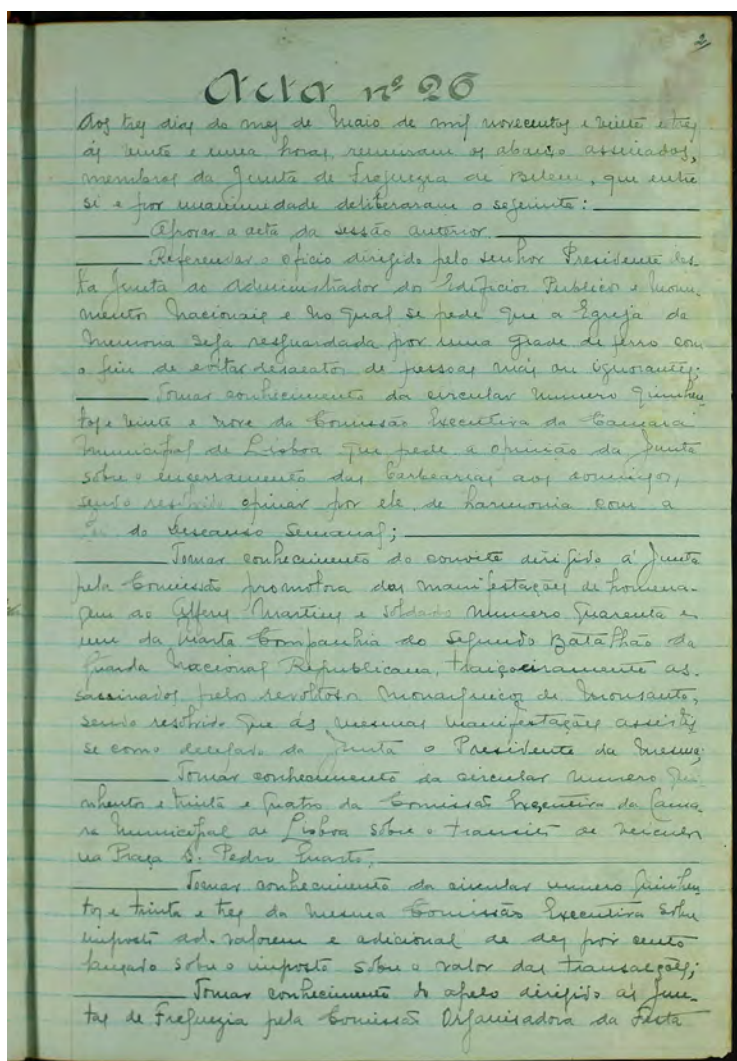 2
Acta nº 26
Aos tres dias do mez de Maio de mil novecentos e vinte e tres
ás vinte e uma horas, reuniram os abaixo assinados,
membros da Junta de Freguezia de Belem, que entre
si e por unanimidade deliberaram o seguinte:
Aprovar a acta da sessão anterior.
Referendar o oficio dirigido pelo senhor Presidente des-
ta Junta ao Administrador dos Edificios Publicos e Monu-
mentos Nacionais e no qual se pede que a Egreja da
Memoria seja resguardada por uma grade de ferro com
o fim de evitar desacatos de pessoas más ou ignorantes;
Tomar conhecimento da circular numero quinhen-
tos e vinte e nove da Comissão Executiva da Camara
Municipal de Lisboa que pede a opinião da Junta
sobre o encerramento das barbearias aos domingos,
sendo resolvido opinar por ele, de harmonia com a
do Descanso Semanal;
Tomar conhecimento do convite dirigido á Junta
pela Comissão promotora das manifestações de homena-
gem ao Alferes Martins e soldado numero quarenta e
um da quarta Companhia do Segundo Batalhão da
Guarda Nacional Republicana, traiçoeiramente as-
sassinados pelos revoltosos monarquicos de Monsanto,
sendo resolvido que ás mesmas manifestações assistis-
se como delegado da Junta o Presidente da mesma;
Tomar conhecimento da circular numero qui-
nhentos e trinta e quatro da Comissão Executiva da Cama-
ra Municipal de Lisboa sobre o transito de veiculos
na Praça D. Pedro Quarto;
Tomar conhecimento da circular numero quinhen-
tos e trinta e tres da mesma Comissão Executiva sobre
imposto ad. valorem e adicional de dez por cento
lançado sobre o imposto sobre o valor das transacções;
Tomar conhecimento do apelo dirigido ás Jun-
tas de Freguezia pela Comissão Organisadora da Festa